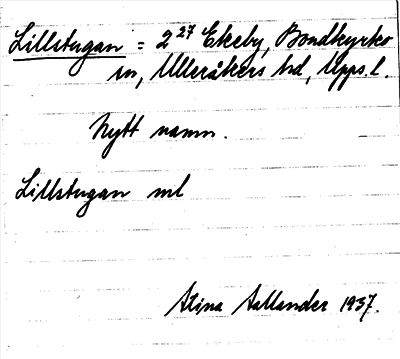 Lillstugan = 2²⁷ Ekeby, Bondkyrko
sn, Ulleråkers hd, Upps. l.
Nytt namn.
Lillstugan ml
Stina Sallander 1937.